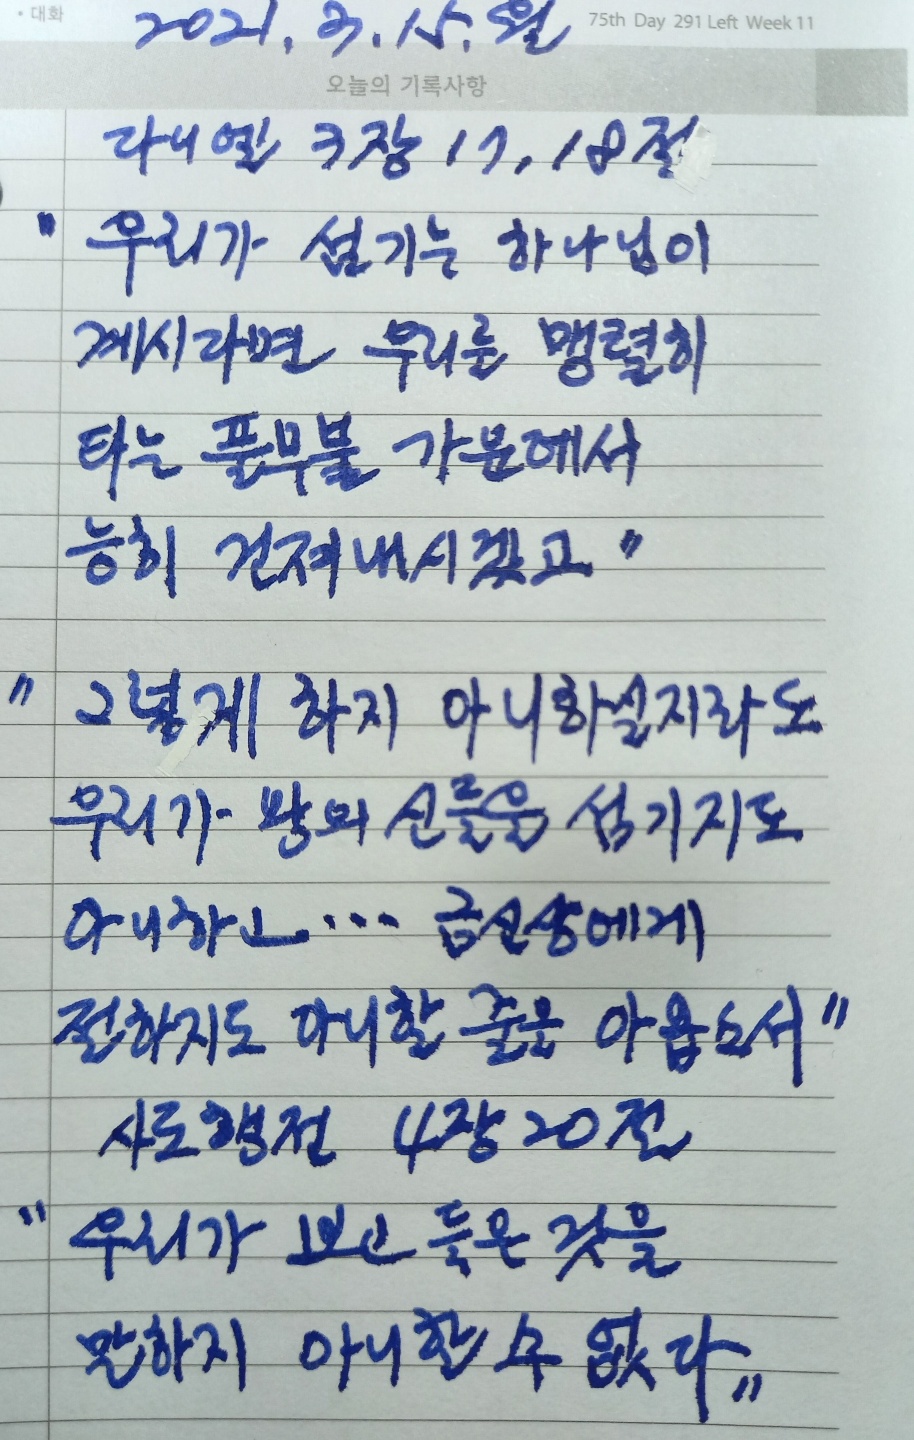 • 대화
2021. 3. 15. 월
75th Day 291 Left Week 11
오늘의 기록사항
다니엘 3장 17, 18절
"우리가 섬기는 하나님이
계시라면 우리를 맹렬히
타는 풀무불 가운데에서
능히 건져내시겠고"
"그렇게 하지 아니하실지라도
우리가 왕의 신들을 섬기지도
아니하고... 금신상에게
절하지도 아니할 줄을 아옵소서"
사도행전 4장 20절
"우리가 보고 들은 것을
말하지 아니할 수 없다"